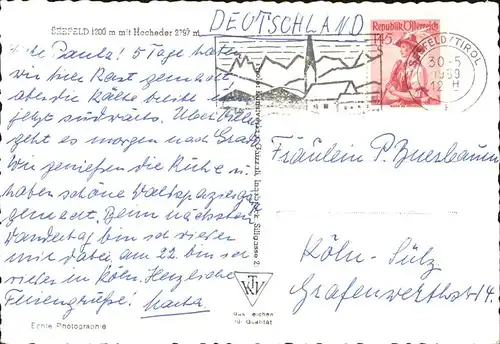 SEEFELD 1200 m mit Hocheder 2797 m
DEUTSCHLAND
Republik Österreich
1.45
SEEFELD/TIROL
30-5
12 H
Liebe Paula! 5 Tage haben
wir hier Rast gemacht
aber die Kälte treibt
jetzt südwärts. Über Villach
geht es morgen nach Grado
Wir genießen die Ruhe u.
haben schöne Waldspaziergänge
gemacht. Beim nächsten
Wandertag bin ich wieder
mit dabei, am 22. bin ich
wieder in Köln. Herzliche
Feriengrüße! Martha
Fräulein P. Buesbaum
Köln-Sülz
Grafenwerthstr. 14.
KTV
Qualität
Echte Photographie